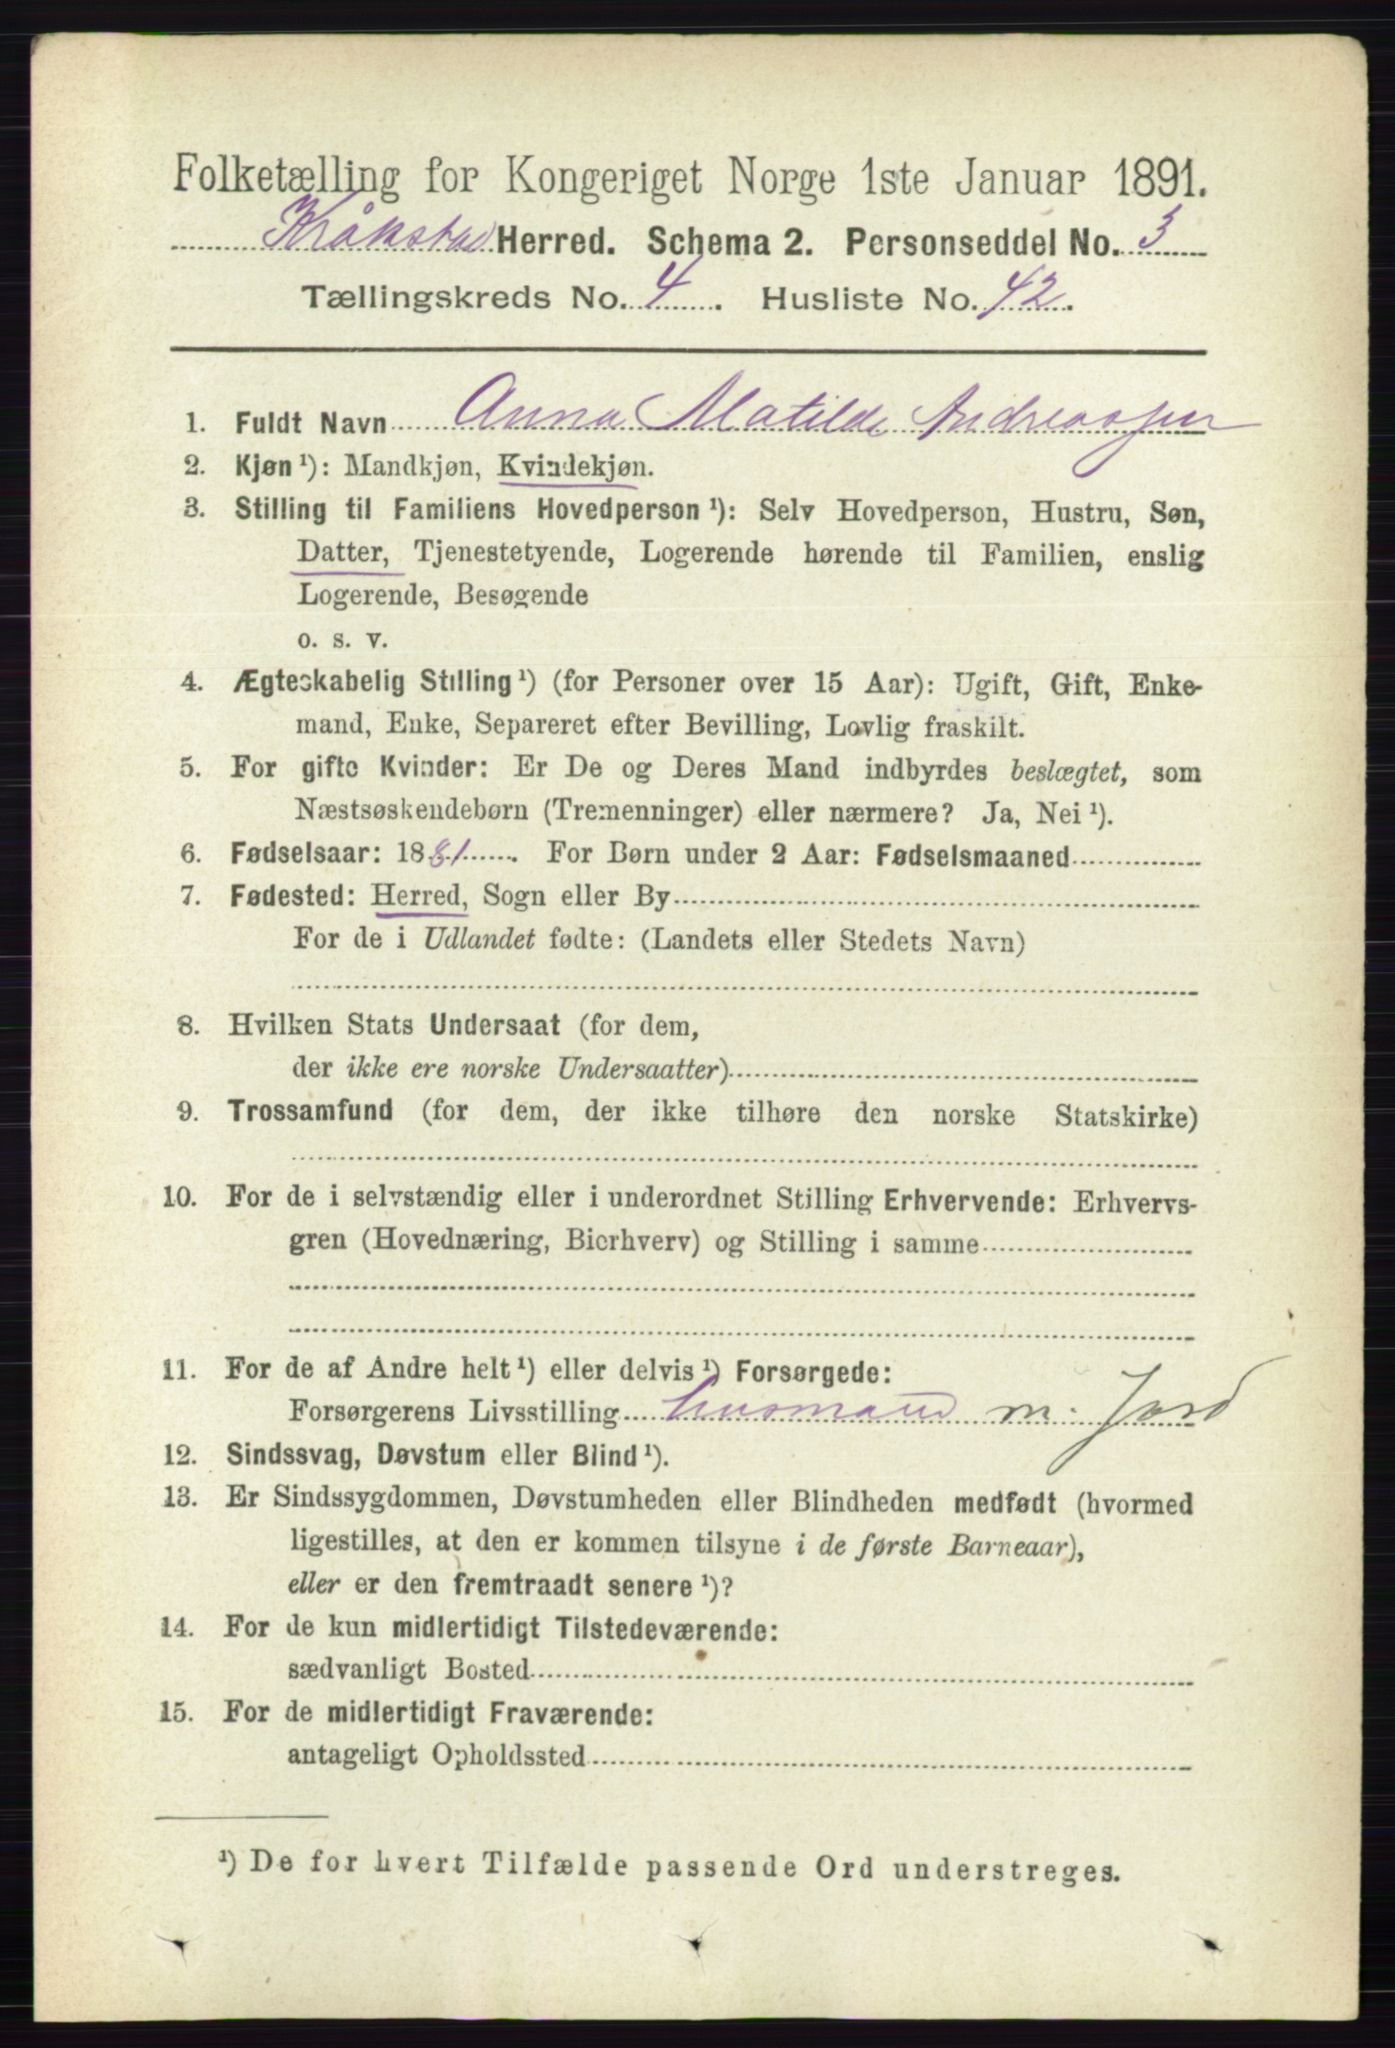 Folketælling for Kongeriget Norge 1ste Januar 1891.
Kråkstad Herred. Schema 2. Personseddel No. 3
Tællingskreds No. 4. Husliste No. 42.
1. Fuldt Navn Anna Matilde Andreassen
2. Kjøn¹): Mandkjøn, Kvindekjøn.
3. Stilling til Familiens Hovedperson¹): Selv Hovedperson, Hustru, Søn,
Datter, Tjenestetyende, Logerende hørende til Familien, enslig
Logerende, Besøgende
o. s. v.
4. Ægteskabelig Stilling¹) (for Personer over 15 Aar): Ugift, Gift, Enke-
mand, Enke, Separeret efter Bevilling, Lovlig fraskilt.
5. For gifte Kvinder: Er De og Deres Mand indbyrdes beslægtet, som
Næstsøskendebørn (Tremenninger) eller nærmere? Ja, Nei¹).
6. Fødselsaar: 1881. For Børn under 2 Aar: Fødselsmaaned
7. Fødested: Herred, Sogn eller By
For de i Udlandet fødte: (Landets eller Stedets Navn)
8. Hvilken Stats Undersaat (for dem,
der ikke ere norske Undersaatter)
9. Trossamfund (for dem, der ikke tilhøre den norske Statskirke)
10. For de i selvstændig eller i underordnet Stilling Erhvervende: Erhvervs-
gren (Hovednæring, Bierhverv) og Stilling i samme
11. For de af Andre helt¹) eller delvis¹) Forsørgede:
Forsørgerens Livsstilling husmand m. Jord
12. Sindssvag, Døvstum eller Blind¹).
13. Er Sindssygdommen, Døvstumheden eller Blindheden medfødt (hvormed
ligestilles, at den er kommen tilsyne i de første Barneaar),
eller er den fremtraadt senere¹)?
14. For de kun midlertidigt Tilstedeværende:
sædvanligt Bosted
15. For de midlertidigt Fraværende:
antageligt Opholdssted
¹) De for hvert Tilfælde passende Ord understreges.